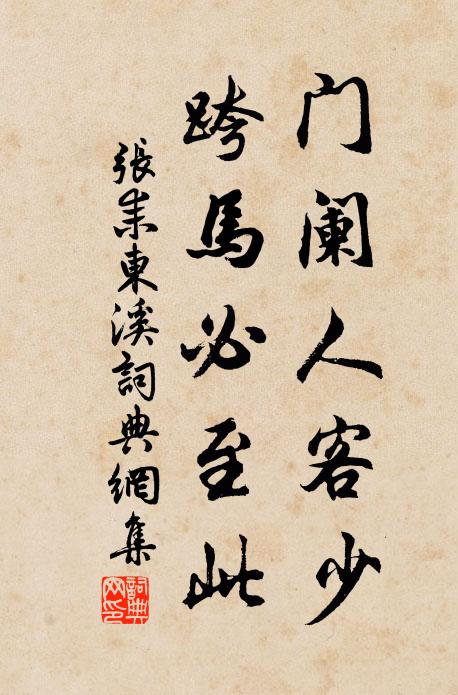 门阑人客少
跨馬必至此
張耒東溪詞典網集
詞典网印